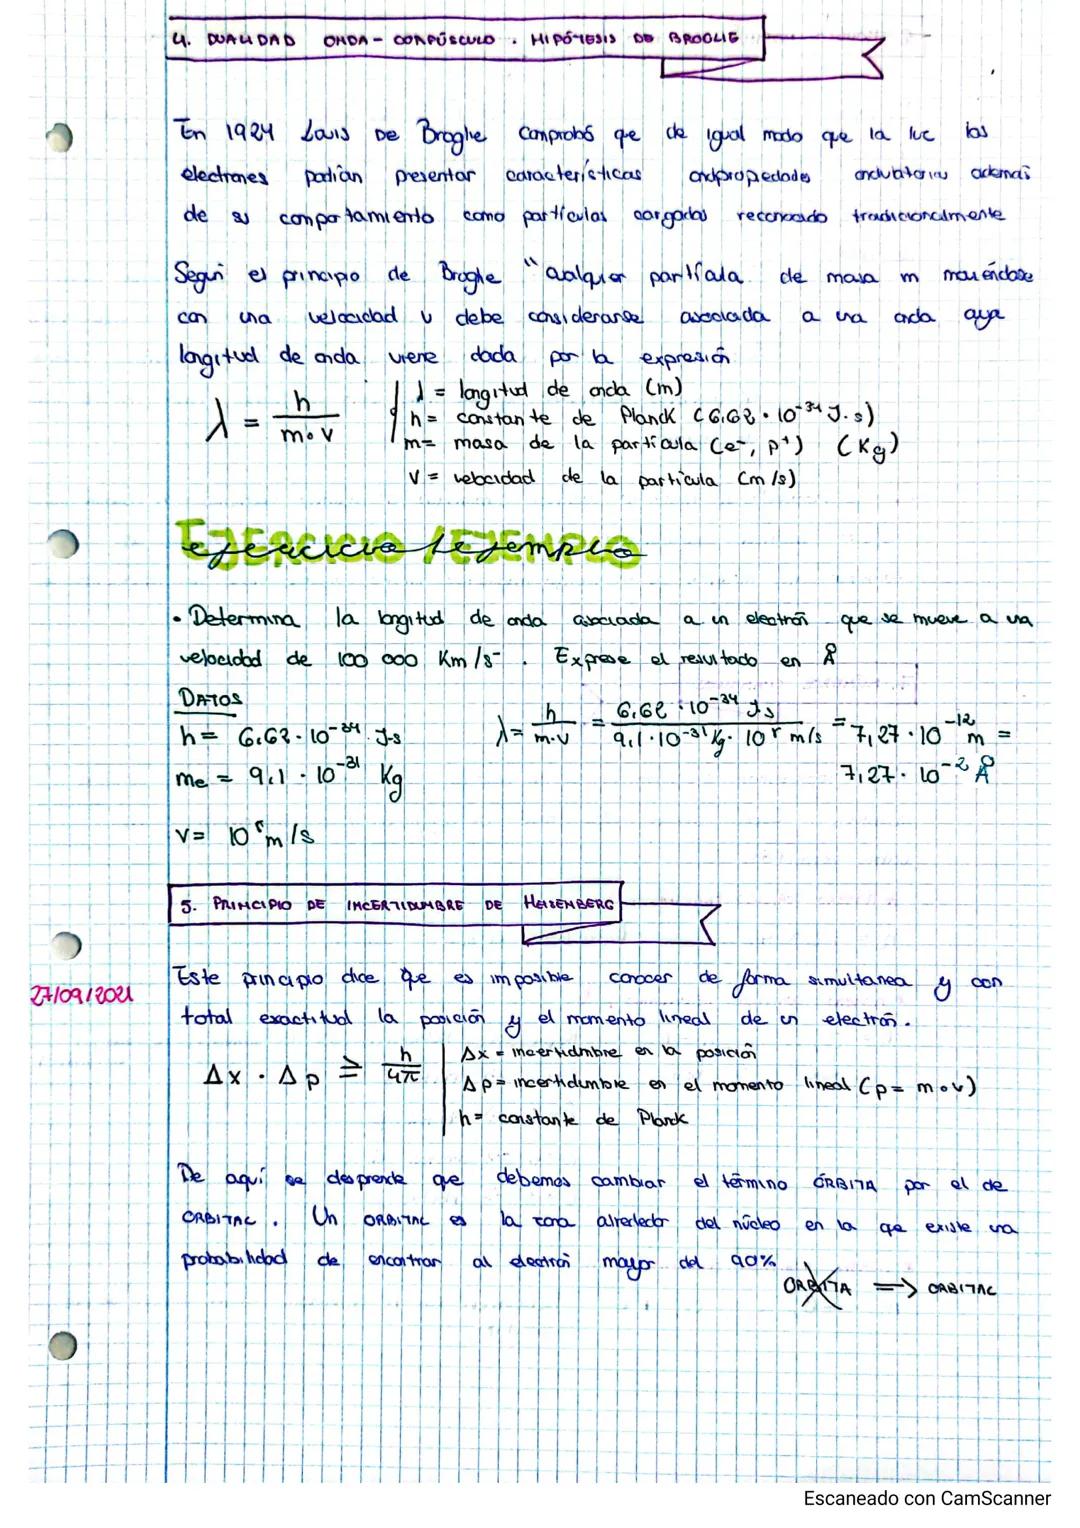 4. DUALIDAD ONDA - CORPÚSCULO. HIPÓTESIS DE BROGLIE
En 1924 Louis De Broglie comprobó que de igual modo que la luz los
electrones podían presentar características ond propiedades ondulatorias además
de su comportamiento como partículas cargadas reconocido tradicionalmente
Según el principio de Broglie "cualquier partícula de masa m moviéndose
con una velocidad v debe considerarse asociada a una onda cuya
longitud de onda viene dada por la expresión
λ = h / m·v
λ = longitud de onda (m)
h = constante de Planck (6,62·10⁻³⁴ J·s)
m = masa de la partícula (e⁻, p⁺) (Kg)
v = velocidad de la partícula (m/s)
EJERCICIO / EJEMPLO
• Determina la longitud de onda asociada a un electrón que se mueve a una
velocidad de 100 000 Km/s. Exprese el resultado en Å
DATOS
h = 6,62·10⁻³⁴ J·s
λ = h / m·v = 6,62·10⁻³⁴ Js / 9,1·10⁻³¹ Kg·10⁸ m/s = 7,27·10⁻¹² m =
me = 9,1·10⁻³¹ Kg
7,27·10⁻² Å
v = 10⁸ m/s
5. PRINCIPIO DE INCERTIDUMBRE DE HEISENBERG
27/09/2021
Este principio dice que es imposible conocer de forma simultanea y con
total exactitud la posición y el momento lineal de un electrón.
Δx · Δp ≥ h / 4π
Δx = incertidumbre en la posición
Δp = incertidumbre en el momento lineal (p = m·v)
h = constante de Planck
De aquí se desprende que debemos cambiar el término ÓRBITA por el de
ORBITAL. Un ORBITAL es la zona alrededor del núcleo en la que existe una
probabilidad de encontrar al electrón mayor del 90%
ORBITA ⇒ ORBITAL
Escaneado con CamScanner